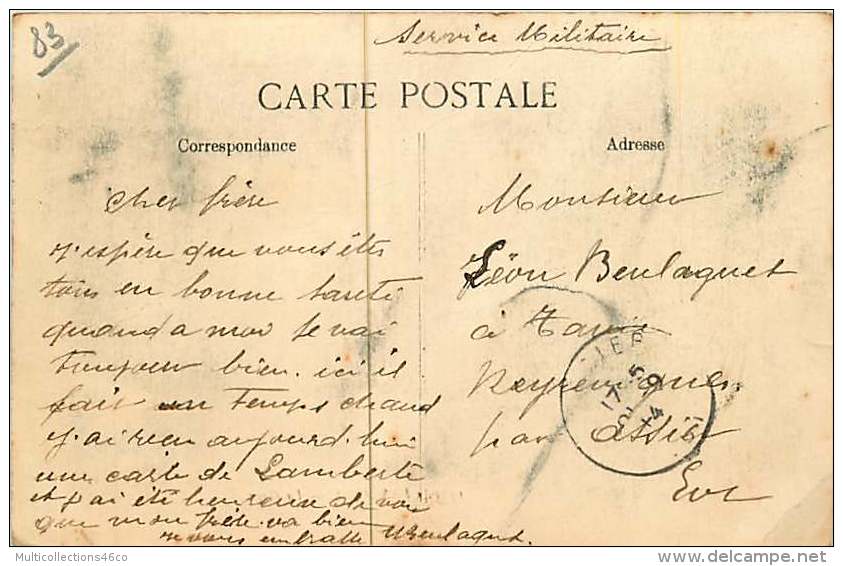 83
Service Militaire
CARTE POSTALE
Correspondance
Adresse
Cher frère
J'espère que vous êtes
tous en bonne santé
quand a moi je vai
toujour bien. ici il
fait un temps chaud
J'ai reçu aujourd'hui
une carte de Lamberte
et j'ai été heureux de voir
que mon frère va bien
je vous embrasse
Monsieur
Léon Benlaguet
à
Reyrevignes
par Assier
Lot
17-5
9
14
Multicollections46co
delcampe.net